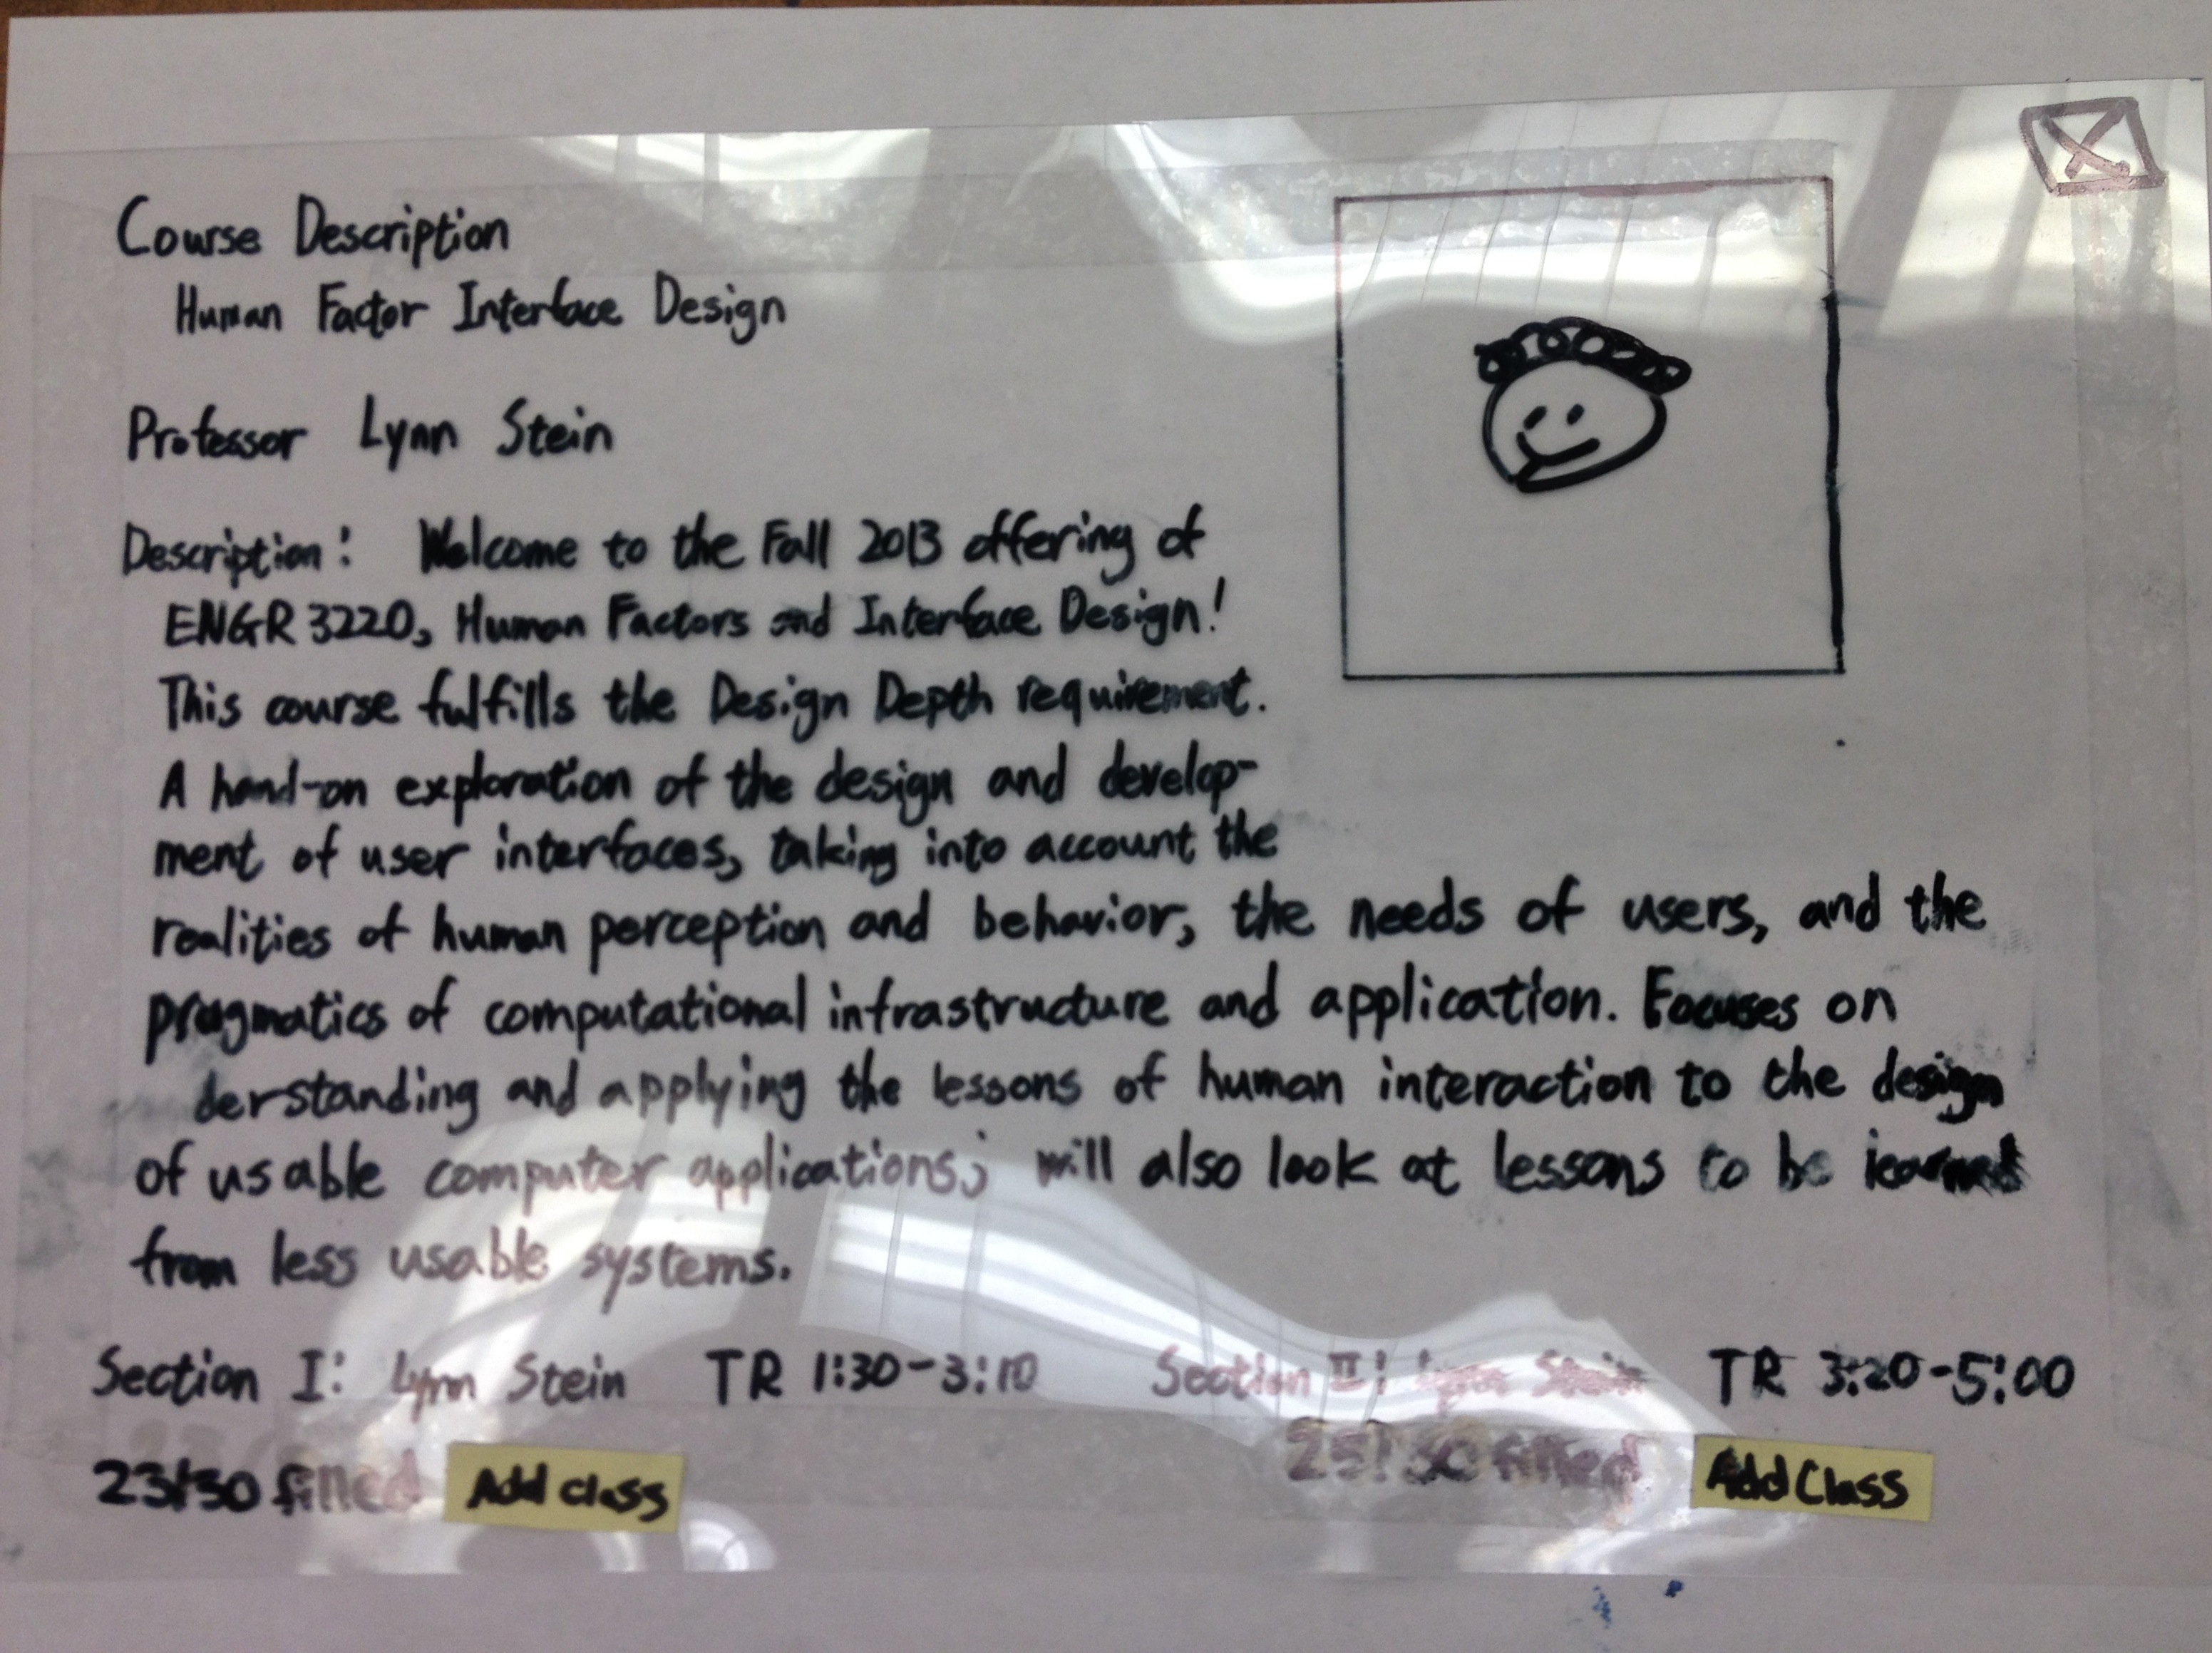 X
Course Description
Human Factor Interface Design
Professor Lynn Stein
Description: Welcome to the Fall 2013 offering of
ENGR 3220, Human Factors and Interface Design!
This course fulfills the Design Depth requirement.
A hand-on exploration of the design and develop-
ment of user interfaces, taking into account the
realities of human perception and behavior, the needs of users, and the
pragmatics of computational infrastructure and application. Focuses on
derstanding and applying the lessons of human interaction to the design
of usable computer applications; will also look at lessons to be learned
from less usable systems.
Section I: Lynn Stein TR 1:30-3:10 Section II: Lynn Stein TR 3:20-5:00
23/30 filled Add class 25/30 filled Add Class